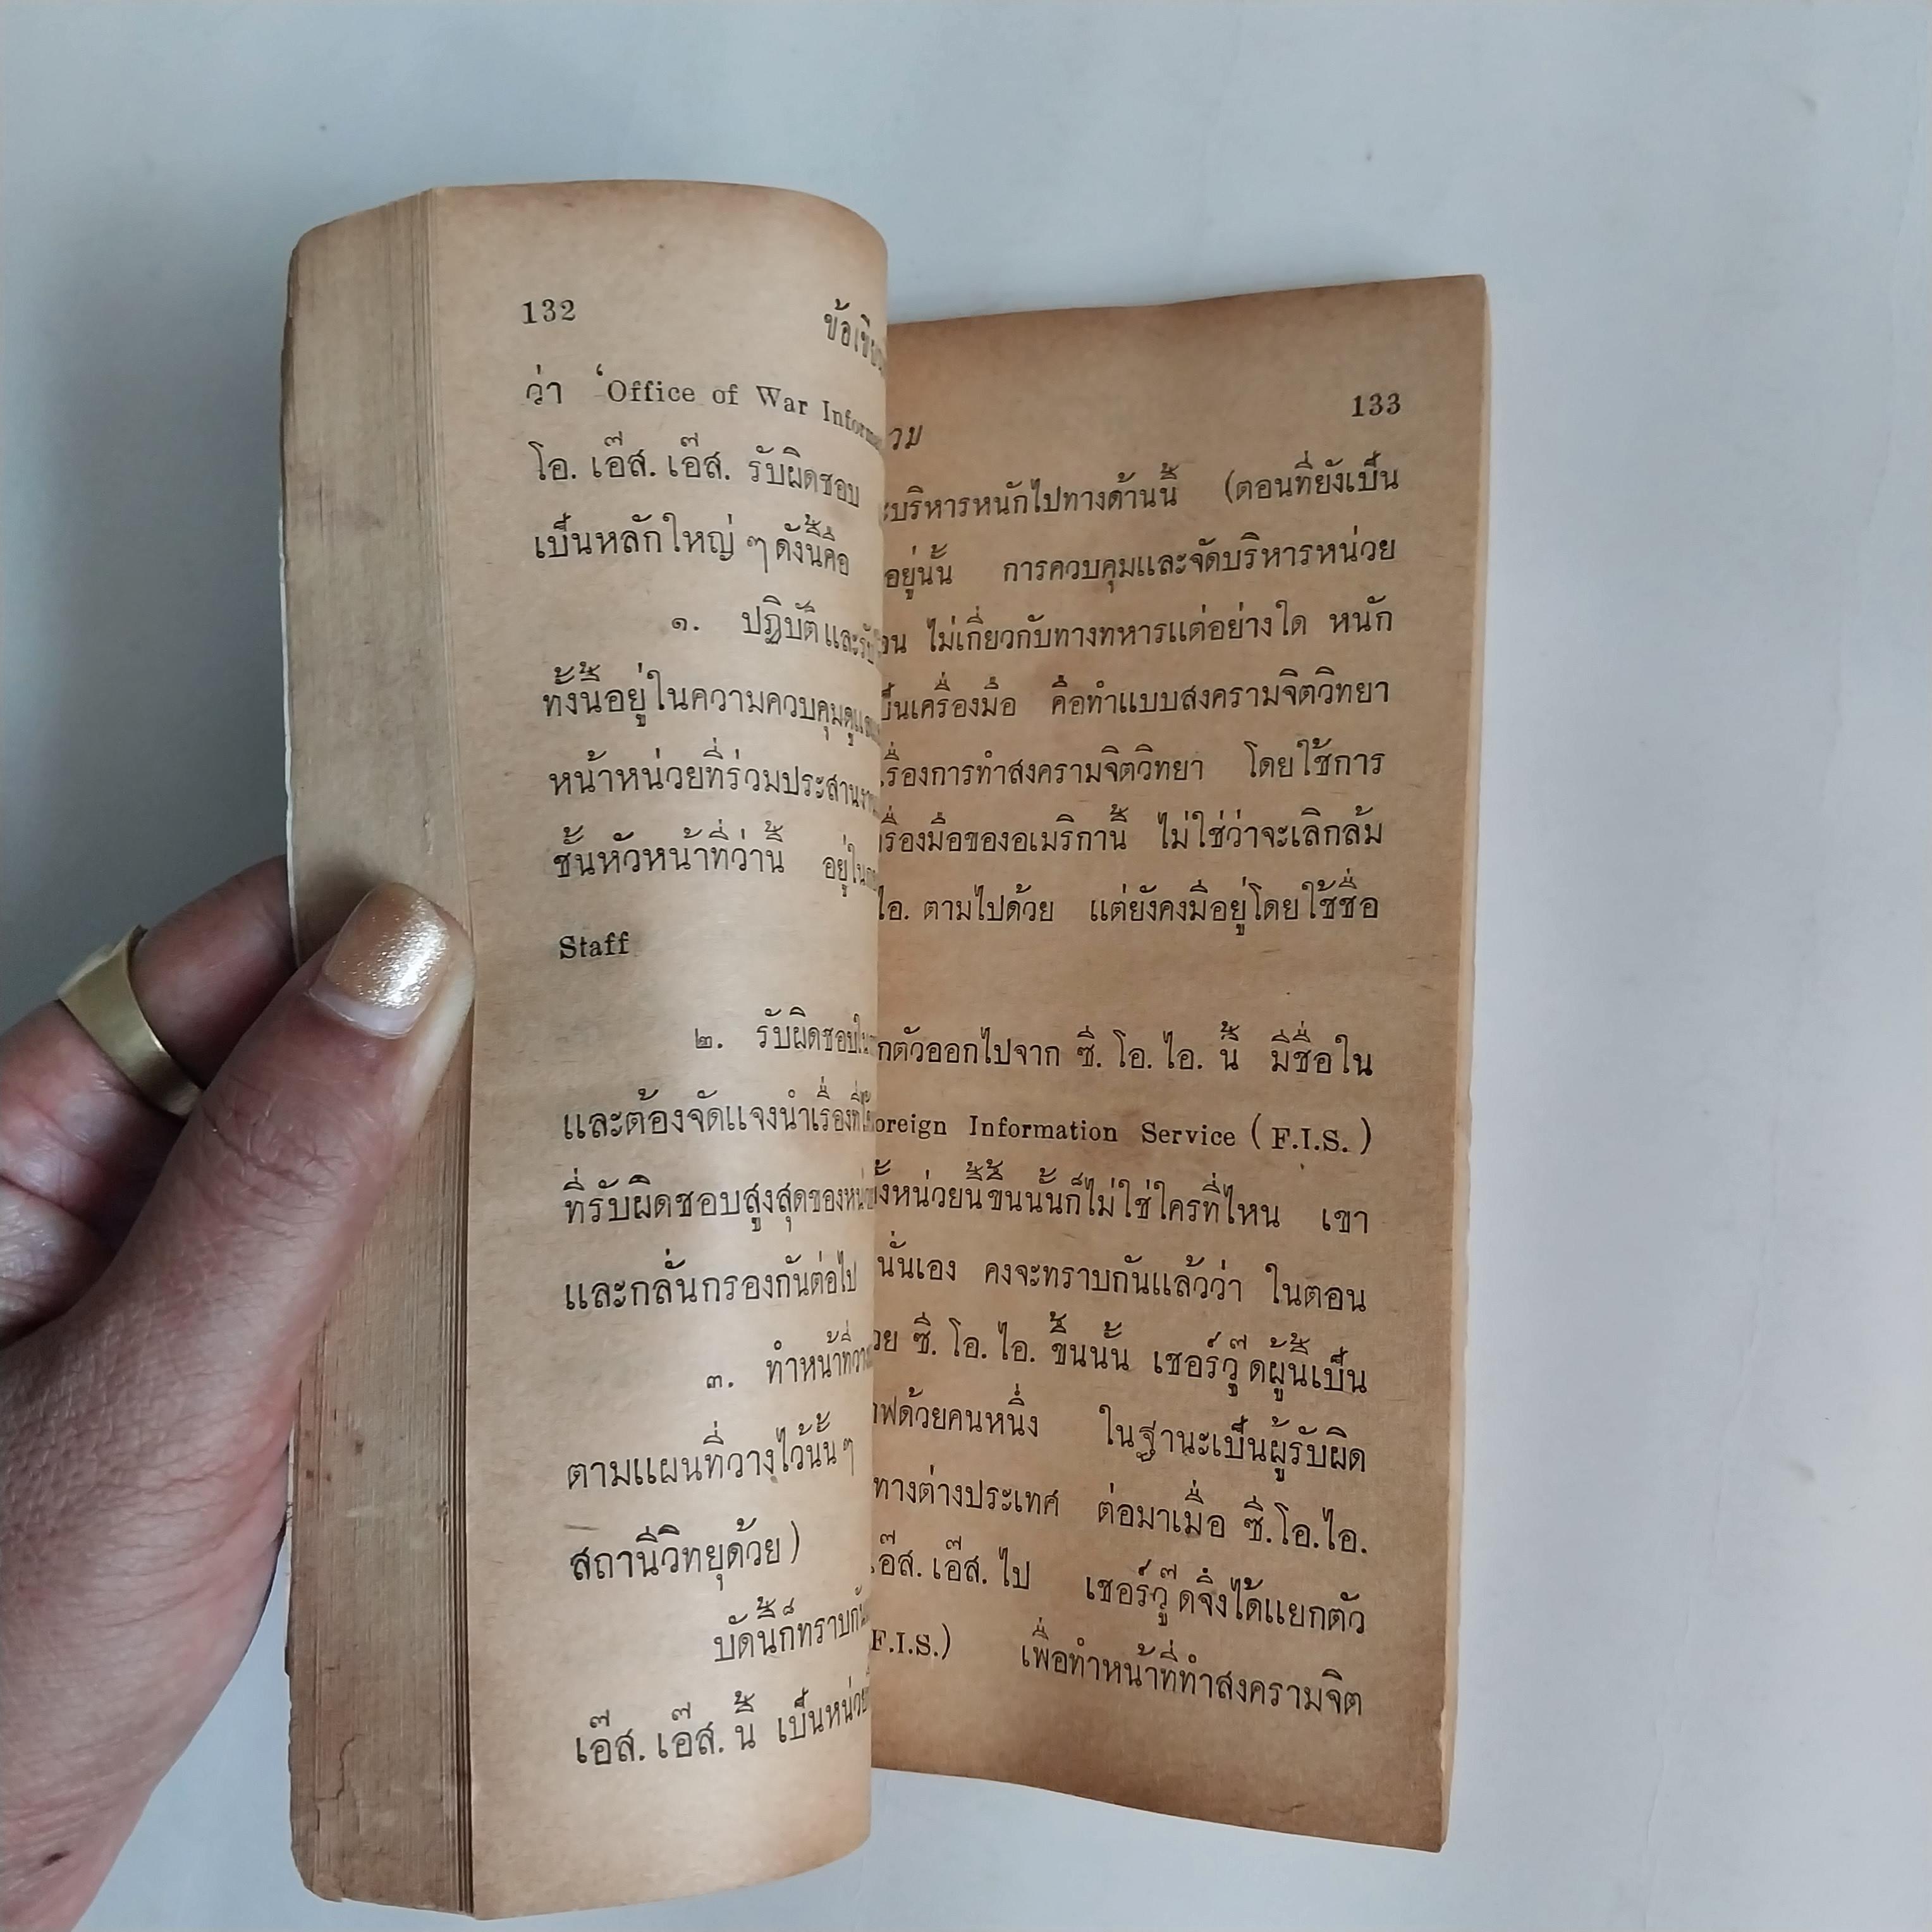 132
ว่า 'Office of War
โอ. เอ๊ส. เอ๊ส. รับผิดชอบ
เป็นหลักใหญ่ ๆ ดังนี้คือ
๑. ปฏิบัติและ
ทั้งนี้อยู่ในความควบคุม
หน้าหน่วยที่ร่วมประสาน
ชั้นหัวหน้าที่ว่านี้ อยู่ใน
Staff
๒. รับผิดชอบ
และต้องจัดแจงนำเรื่องที่
ที่รับผิดชอบสูงสุดของ
และกลั่นกรองกันต่อไป
๓. ทำหน้าที่
ตามแผนที่วางไว้นั้น ๆ
สถานีวิทยุด้วย)
บัดนี้ก็ทราบ
เอ๊ส. เอ๊ส. นี้ เป็น
133
บริหารหนักไปทางด้านนี้ (ตอนที่ยังเป็น
อยู่นั้น การควบคุมและจัดบริหารหน่วย
ไม่เกี่ยวกับทางทหารแต่อย่างใด หนัก
เครื่องมือ คือทำแบบสงครามจิตวิทยา
การทำสงครามจิตวิทยา โดยใช้การ
ของอเมริกานี้ ไม่ใช่ว่าจะเลิกล้ม
ไอ. ตามไปด้วย แต่ยังคงมีอยู่โดยใช้ชื่อ
ตัวออกไปจาก ซี. โอ. ไอ. นี้ มีชื่อใน
Information Service (F.I.S.)
หน่วยนี้ขึ้นนั้นก็ไม่ใช่ใครที่ไหน เขา
นั่นเอง คงจะทราบกันแล้วว่า ในตอน
ซี. โอ. ไอ. ขึ้นนั้น เชอร์วู๊ดผู้นี้เป็น
ด้วยคนหนึ่ง ในฐานะเป็นผู้รับผิด
ทางต่างประเทศ ต่อมาเมื่อ ซี.โอ.ไอ.
เอ๊ส. ไป เชอร์วู๊ดจึงได้แยกตัว
F.I.S.) เพื่อทำหน้าที่ทำสงครามจิต